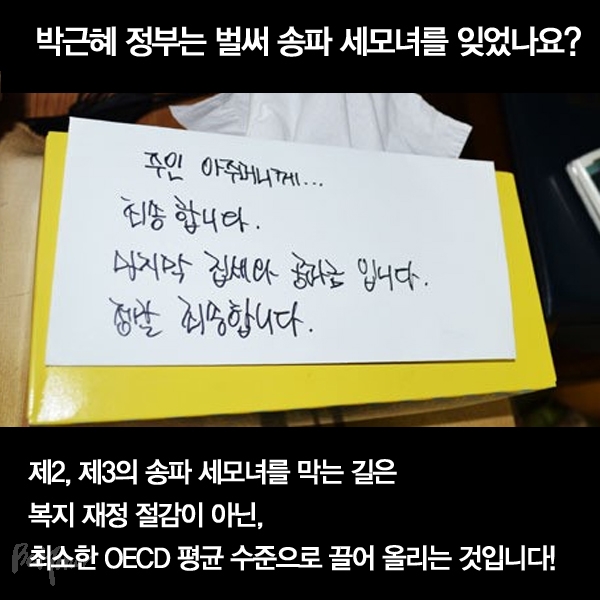 박근혜 정부는 벌써 송파 세모녀를 잊었나요?
주인 아주머니께...
죄송합니다.
마지막 집세와 공과금 입니다.
정말 죄송합니다.
제2, 제3의 송파 세모녀를 막는 길은
복지 재정 절감이 아닌,
최소한 OECD 평균 수준으로 끌어 올리는 것입니다!